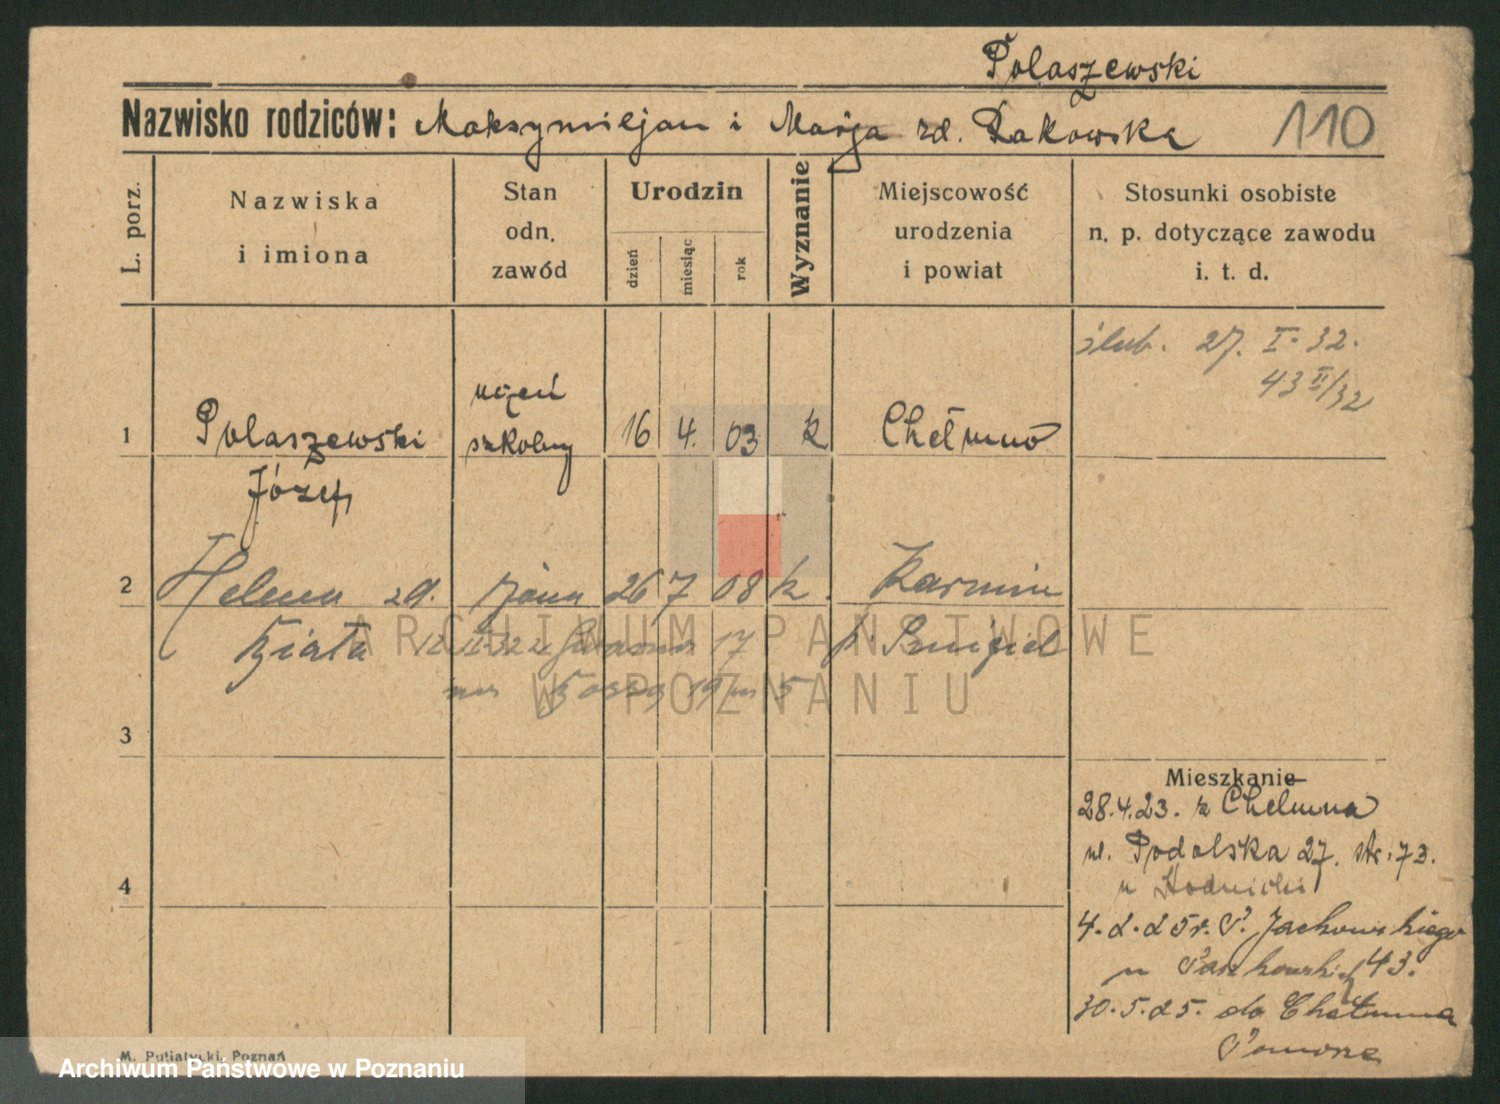 Polaszewski
Nazwisko rodziców: Maksymiljan i Marja zd. Pakowska 110
L. porz.
Nazwiska
i imiona
Stan
odn.
zawód
Urodzin
dzień
miesiąc
rok
Wyznanie
Miejscowość
urodzenia
i powiat
Stosunki osobiste
n. p. dotyczące zawodu
i. t. d.
ślub. 27. I. 32.
43 II/32
uczeń
1 Polaszewski szkolny 16 4. 03 k Chełmno
Józef
2 Helena zd. Jana 26 7 08 k. Karmin
Biała 12 32 z 17 p. Śmigiel
19 m 5
3
Mieszkanie
28.4.23. z Chełmna
ul. Podolska 27. str. 73.
u
4
4.2.25r. P. Jackowskiego
43.
30.5.25. do Chełmna
Pomorze
M. Putiatycki, Poznań
ARCHIWUM PAŃSTWOWE
W POZNANIU
Archiwum Państwowe w Poznaniu